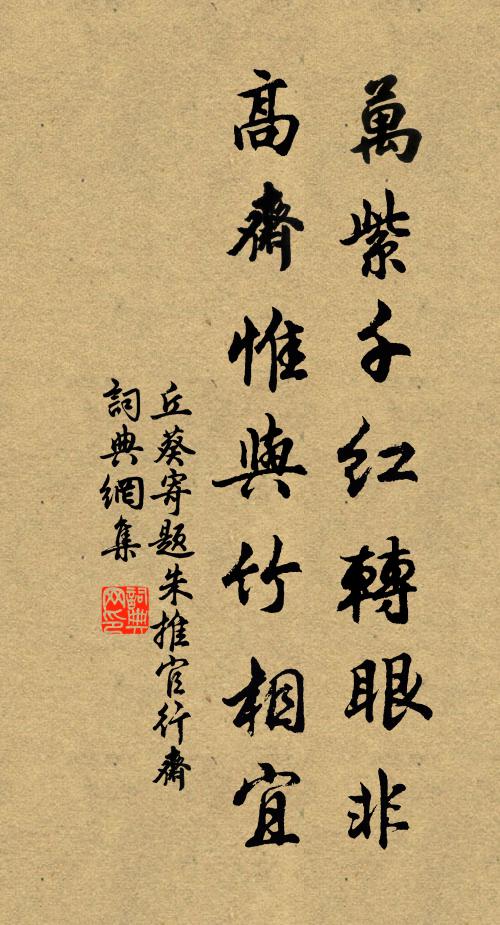 萬紫千紅轉眼非
高齋惟與竹相宜
丘葵寄題朱推官行齋
詞典網集
詞典
网印